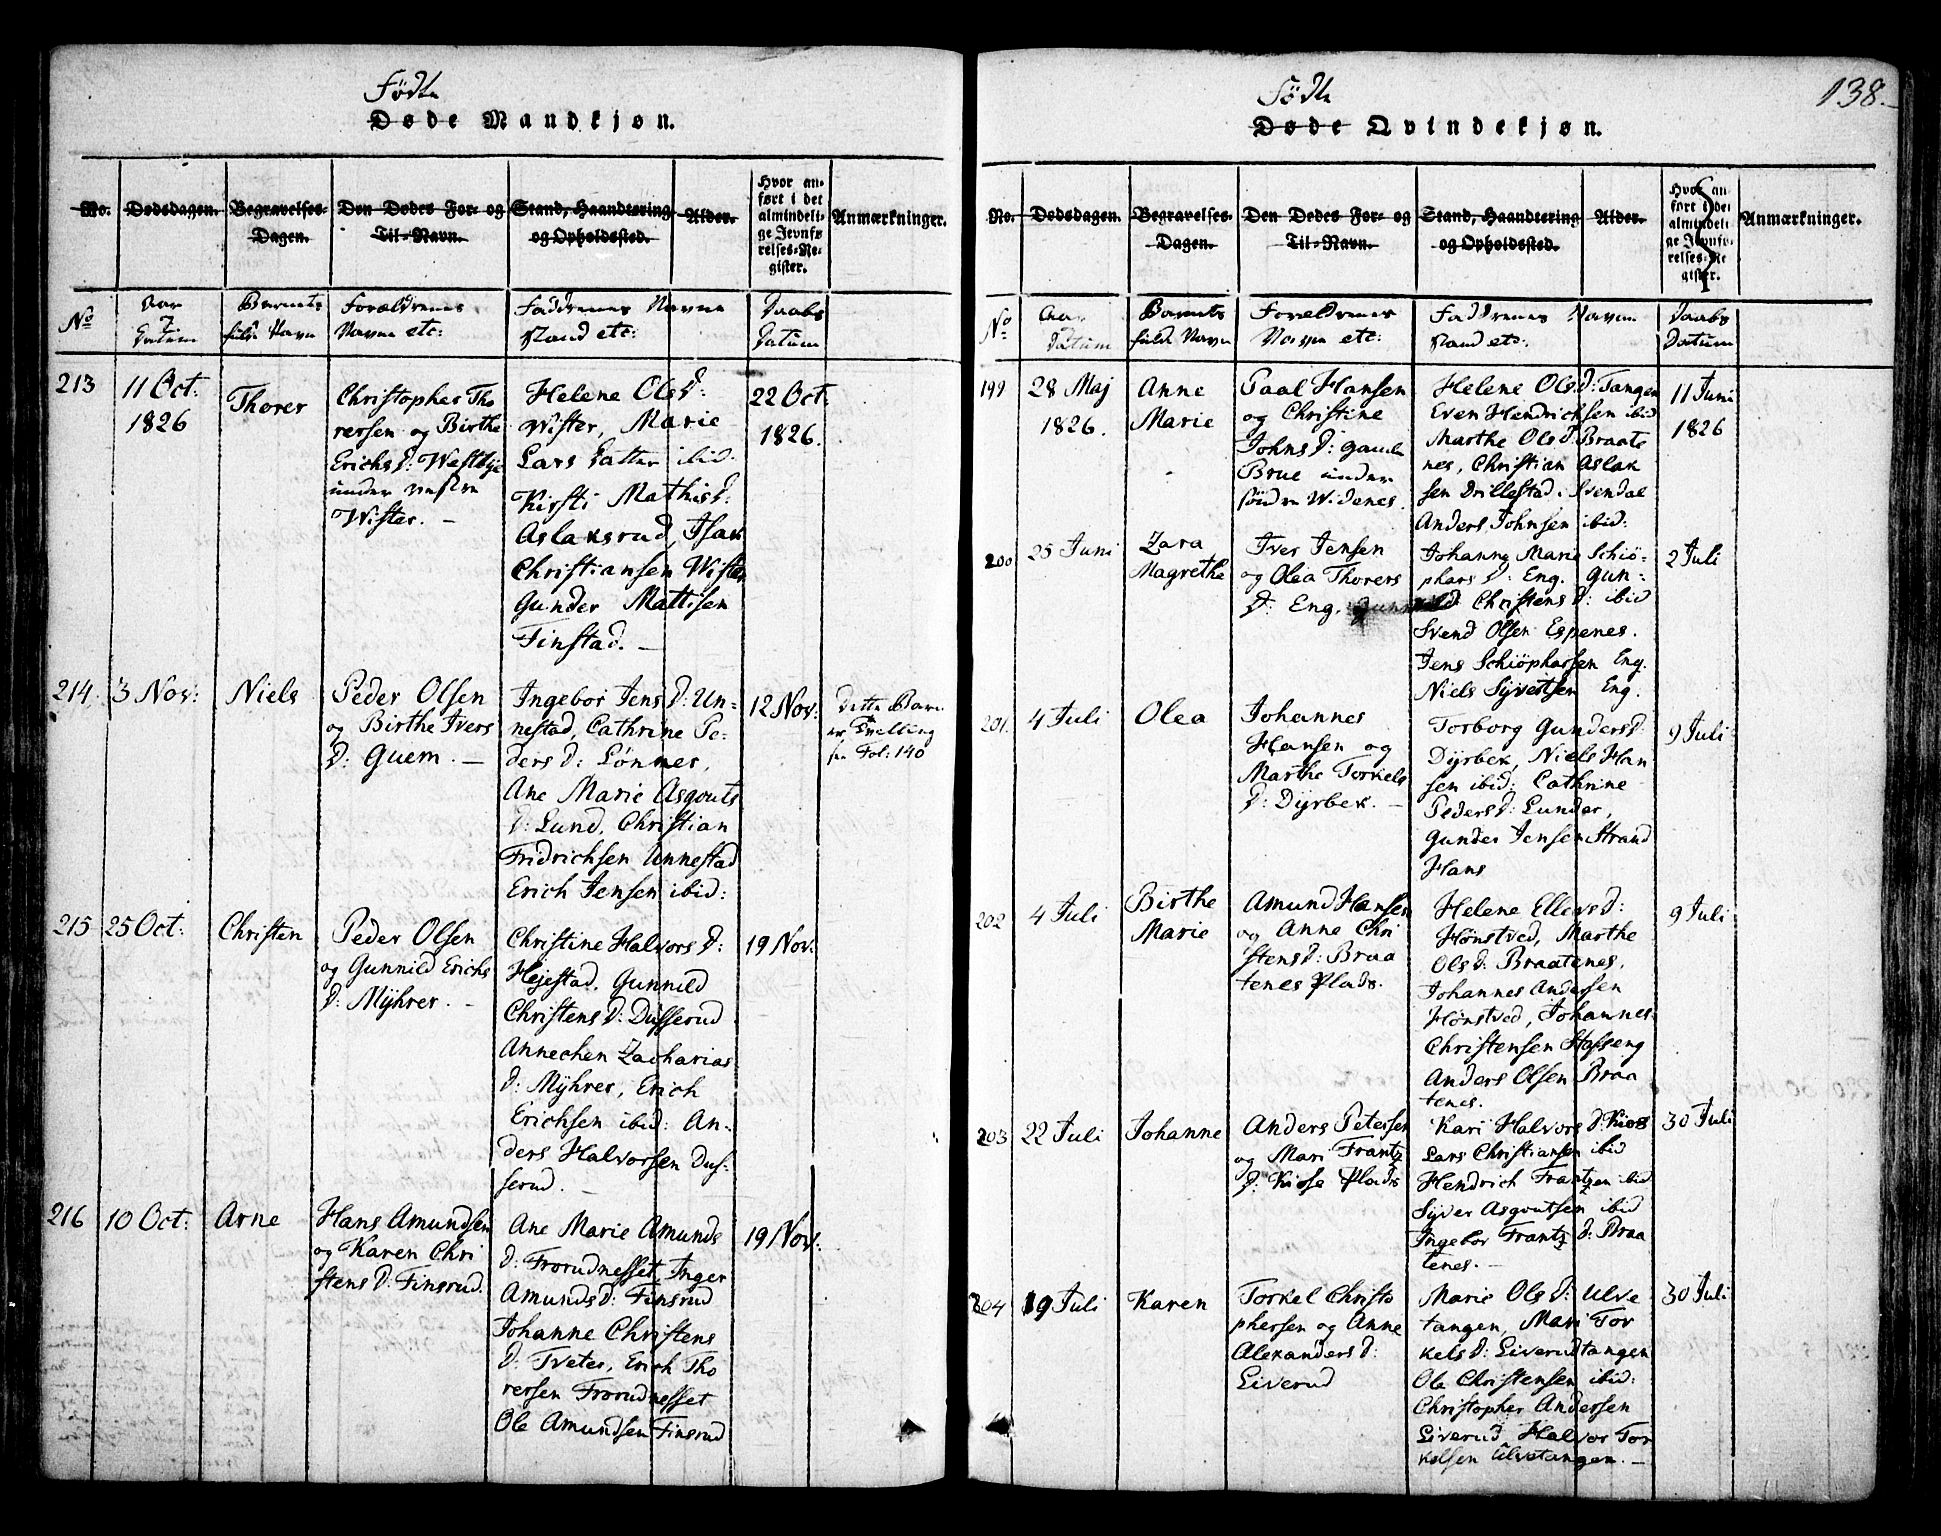 Fødte
Døde Mandkjøn.
No. Dødsdagen. Begravelses-Dagen. Den Dødes For- og Til-Navn. Stand, Haandtering og Opholdssted. Alder. Hvor anført i det almindelige Jevnførelses-Register. Anmærkninger.
No Aar Datum
Barnets fulde Navn
Forældrenes Navne etc:
Faddrenes Navne Stand etc:
Daabs Datum
213
11 Oct:
1826
Thorer
Christopher Tho
rersen og Birthe
Erichs D: Westbye
under vestre
Wister. –
Helene Ols D:
Wister, Marie
Lars Datter ibid:
Kirsti Mathis D:
Aslaksrud, Isak
Christiansen Wister
Gunder Mattisen
Finstad. –
22 Oct
1826.
214.
3 Nov:
Niels
Peder Olsen
og Birthe Ivers
D: Guem. –
Ingebor Jens D: Un=
nestad, Cathrine Pe-
ders D: Lønnes,
Ane Marie Asgouts
D: Lund, Christian
Fridrichsen Unnestad
Erich Jensen ibid:
12 Nov:
Dette Barn
er Tvilling
see Fol: 140
215
25 Oct:
Christen
Peder Olsen
og Gunnild Erichs
D: Mÿhrer. –
Christine Halvors D:
Hejestad. Gunnild
Christens D: Dusserud
Annechen Zacharias
D: Mÿhrer, Erich
Erichsen ibid: An-
ders Halvorsen Dus-
serud. –
19 Nov:
216
10 Oct:
Arne
Hans Amundsen
og Karen Chri
stens D: Finsrud.
Ane Marie Amunds
D: Frorudnesset, Inger
Amunds D: Finsrud
Johanne Christens
D: Tveter, Erich Tho
rersen Frorudnesset
Ole Amundsen Finsrud
19 Nov:
138.
Fødte
Døde Qvindekjøn.
No. Dødsdagen. Begravelses-Dagen. Den Dødes For- og Til-Navn. Stand, Haandtering og Opholdssted. Alder. Hvor anført i det almindelige Jevnførelses-Register. Anmærkninger.
No Aar Datum
Barnets fulde Navn
Forældrenes Navne etc:
Faddrenes Navne Stand etc:
Daabs Datum
199
28 Maj
1826.
Anne
Marie
Paal Hansen
og Christine
Johns D: gamle
Brue under
søndre Widenes.
Helene Ols D: Tangen
Even Hendrichsen ibid
Marthe Ols D: Braate
nes, Christian Aslak
sen Drillestad, Svendal
Anders Johnsen ibid:
11 Juni
1826
200
25 Juni
Zara
Magrethe
Iver Jensen
og Olea Thorers
D: Eng.
Johanne Marie Schiö-
phars D: Eng. Gun-
nild Christens D: ibid
Svend Olsen Espenes.
Jens Schiöpharsen Eng.
Niels Sÿvertsen Eng.
2 Juli
201.
4 Juli
Olea
Johannes
Hansen og
Marthe Torkels
D: Dÿrbek. –
Torborg Gunders D:
Dÿrbek, Niels Han
sen ibid: Cathrine
Peders D: Lunder,
Gunder Jensen Strand
Hans
9 Juli
202
4 Juli
Birthe
Marie
Amund Hansen
og Anne Chri
stens D: Braa
tenes Plads.
Helene Ellevs D:
Hönstved, Marthe
Ols D: Braatenes,
Johannes Andersen
Hönstved, Johannes
Christensen Hasseng
Anders Olsen Braa
tenes.
9 Juli
203
22 Juli
Johanne
Anders Petersen
og Mari Frantz
D: Kiose Plads
Kari Halvors D: Kios
Lars Christiansen ibid
Hendrich Frantzen ibid
Sÿver Asgoutsen ibid
Ingebor Frantz D: Braa
tenes. –
30 Juli
204
19 Juli
Karen
Torkel Christo
phersen og Anne
Alexanders D:
Liverud
Marie Ols D: Ulve
tangen, Mari Tor
kels D: Liverudtangen
Ole Christensen ibid:
Christopher Andersen
Liverud, Halvor Tor
kelsen Ulvetangen. –
30 Juli